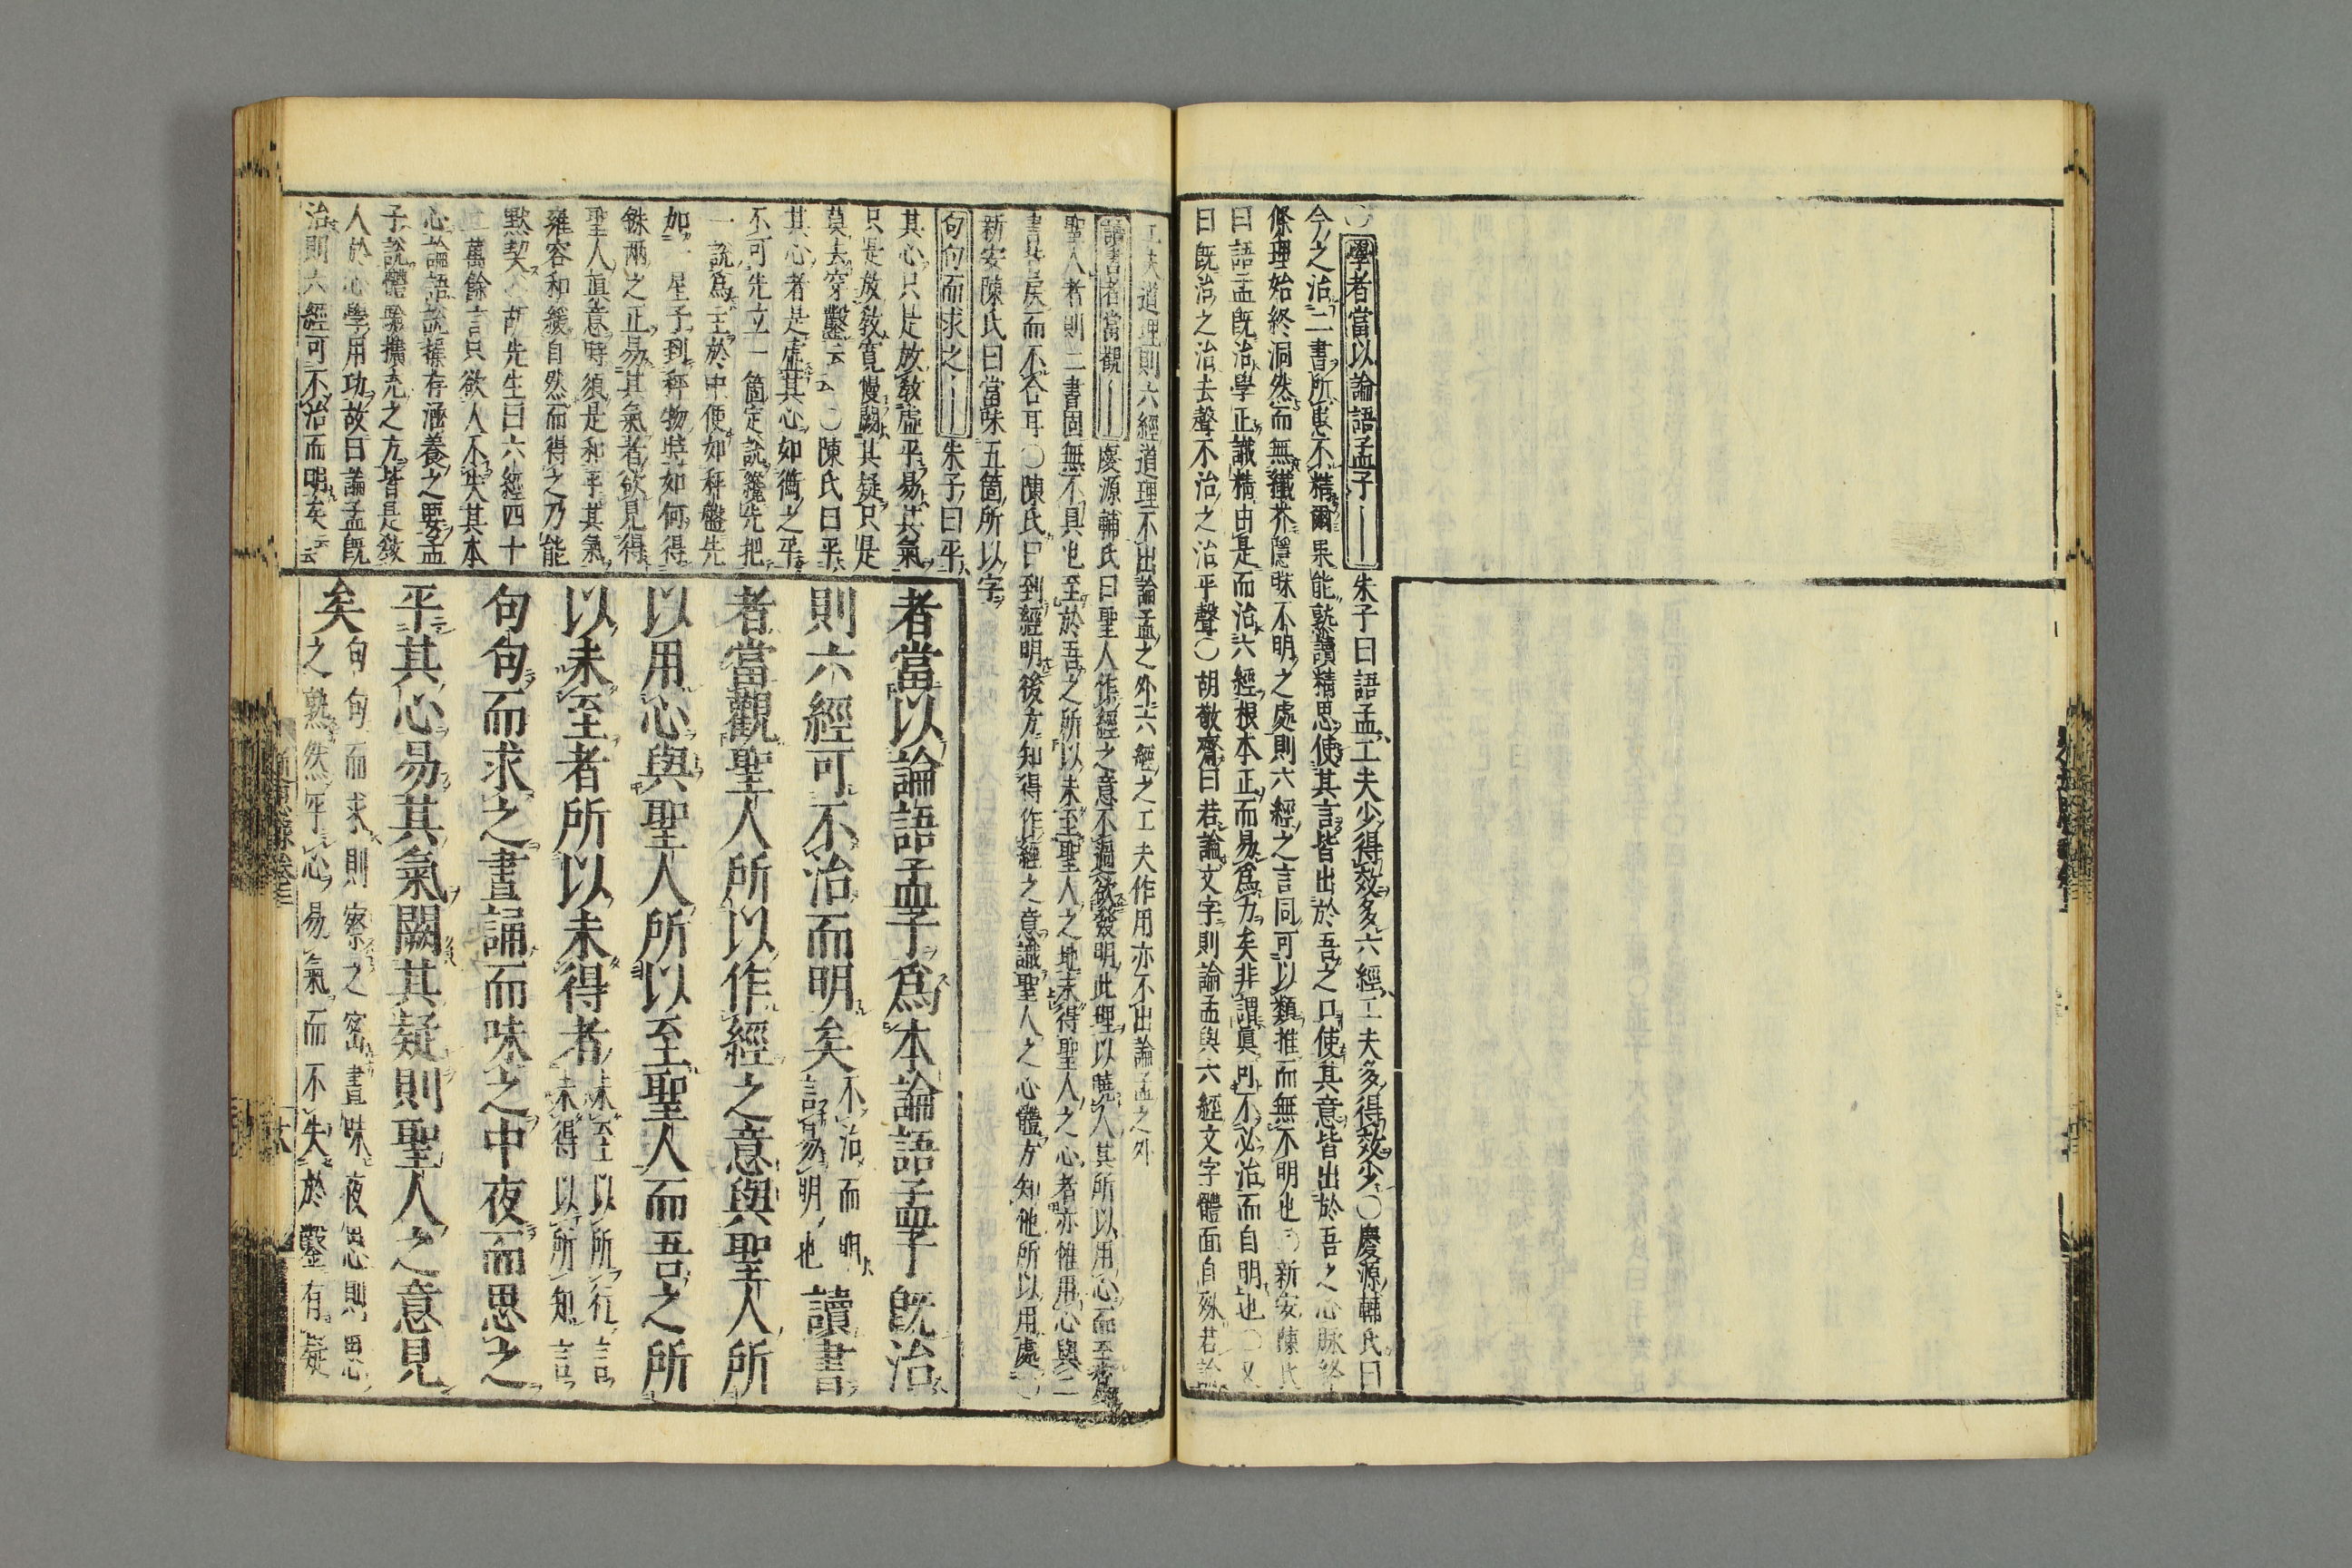 〇學者當以論語孟子――朱子曰語孟工夫少得效多六經工夫多得效少〇慶源輔氏曰
今之治二書所患不精爾果能熟讀精思使其言皆出於吾之口使其意皆出於吾之心脉絡
條理始終洞然而無纖芥隱昧不明之處則六經之言同可以類推而無不明也〇新安陳氏
曰語孟既治學正識精由是而治六經根本正而易爲力矣非謂眞可不必治而自明也〇又
曰既治之治去聲不治之治平聲〇胡敬齋曰若論文字則論孟與六經文字體面自殊若論
工夫道理則六經道理不出論孟之外六經之工夫作用亦不出論孟之外
讀書者當觀――慶源輔氏曰聖人作經之意不過欲發明此理以曉人其所以用心而至
聖人者則二書固無不具也至於吾之所以未至聖人之地未得聖人之心者亦惟用心與二
書背戾而不合耳〇陳氏曰到經明後方知得作經之意識聖人之心體方知他所以用處〇
新安陳氏曰當味五箇所以字
句句而求之――朱子曰平
其心只是放敎虛平易其氣
只是放敎寬慢闕其疑只是
莫去穿鑿云云〇陳氏曰平
其心者是虛其心如衡之平
不可先立一箇定說纔先把
一說爲主於中便如秤盤先
如一星子到秤物時如何得
銖兩之正易其氣者欲見得
聖人眞意時須是和平其氣
雍容和緩自然而得之乃能
默契
先生曰六經四十
萬餘言只欲人不失其本
心論語說操存涵養之要孟
子說體驗擴充之方皆是敎
人於心學用功故曰論孟既
治則六經可不治而明矣云云
者當以論語孟子爲本論語孟子既治
則六經可不治而明矣不治而明也言易明也讀書
者當觀聖人所以作經之意與聖人所
以用心與聖人所以至聖人而吾之所
以未至者所以未得者未至以所行言未得以所知言
句句而求之晝誦而味之中夜而思之
平其心易其氣闕其疑則聖人之意見
矣句句而求則察之密晝味夜思則思之熟然平心易氣而不失於鑿有疑